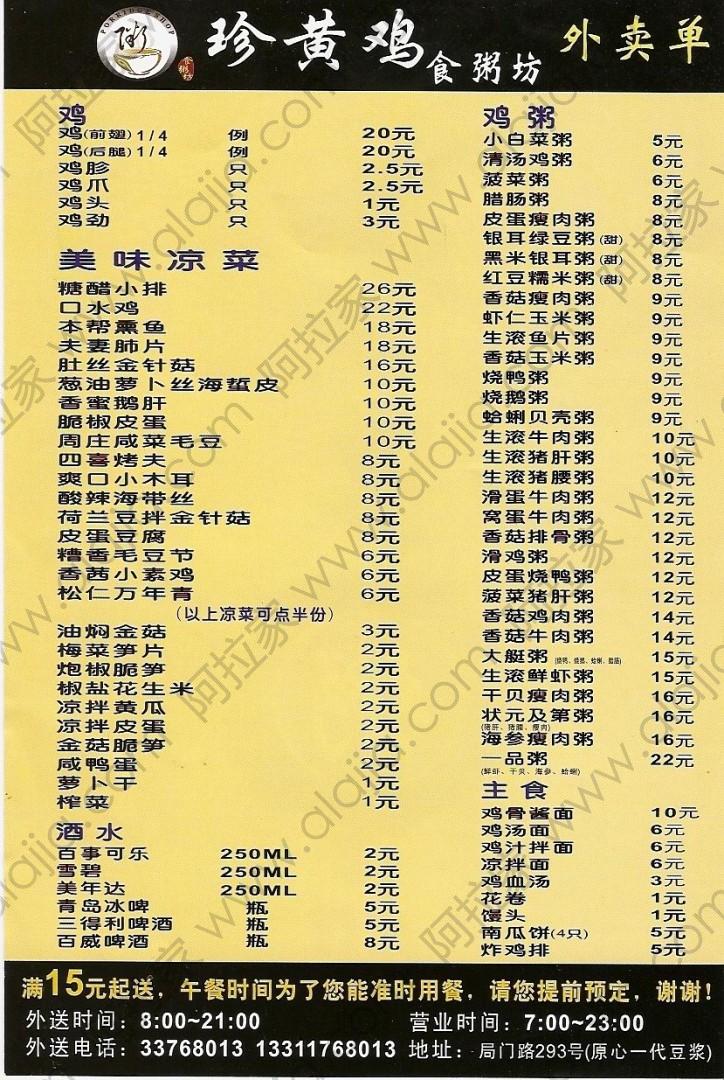 PORRIDGE SHOP
粥
食粥坊
珍黄鸡食粥坊 外卖单
鸡
鸡(前翅)1/4 例 20元
鸡(后腿)1/4 例 20元
鸡胗 只 2.5元
鸡爪 只 2.5元
鸡头 只 1元
鸡劲 只 3元
美味凉菜
糖醋小排 26元
口水鸡 22元
本帮熏鱼 18元
夫妻肺片 18元
肚丝金针菇 16元
葱油萝卜丝海蜇皮 10元
香蜜鹅肝 10元
脆椒皮蛋 10元
周庄咸菜毛豆 10元
四喜烤夫 8元
爽口小木耳 8元
酸辣海带丝 8元
荷兰豆拌金针菇 8元
皮蛋豆腐 8元
糟香毛豆节 6元
香茜小素鸡 6元
松仁万年青 6元
(以上凉菜可点半份)
油焖金菇 3元
梅菜笋片 2元
炮椒脆笋 2元
椒盐花生米 2元
凉拌黄瓜 2元
凉拌皮蛋 2元
金菇脆笋 2元
咸鸭蛋 2元
萝卜干 1元
榨菜 1元
酒水
百事可乐 250ML 2元
雪碧 250ML 2元
美年达 250ML 2元
青岛冰啤 瓶 5元
三得利啤酒 瓶 5元
百威啤酒 瓶 8元
鸡粥
小白菜粥 5元
清汤鸡粥 6元
菠菜粥 6元
腊肠粥 8元
皮蛋瘦肉粥 8元
银耳绿豆粥(甜) 8元
黑米银耳粥(甜) 8元
红豆糯米粥(甜) 8元
香菇瘦肉粥 9元
虾仁玉米粥 9元
生滚鱼片粥 9元
香菇玉米粥 9元
烧鸭粥 9元
烧鹅粥 9元
蛤蜊贝壳粥 9元
生滚牛肉粥 10元
生滚猪肝粥 10元
生滚猪腰粥 10元
滑蛋牛肉粥 12元
窝蛋牛肉粥 12元
香菇排骨粥 12元
滑鸡粥 12元
皮蛋烧鸭粥 12元
菠菜猪肝粥 12元
香菇鸡肉粥 14元
香菇牛肉粥 14元
大艇粥 15元
生滚鲜虾粥 15元
干贝瘦肉粥 16元
状元及第粥 16元
(猪肝、猪腰、瘦肉)
海参瘦肉粥 16元
一品粥 22元
(鲜虾、干贝、海参、蛤蜊)
主食
鸡骨酱面 10元
鸡汤面 6元
鸡汁拌面 6元
凉拌面 6元
鸡血汤 3元
花卷 1元
馒头 1元
南瓜饼(4只) 5元
炸鸡排 5元
满15元起送，午餐时间为了您能准时用餐，请您提前预定，谢谢！
外送时间：8:00~21:00 营业时间：7:00~23:00
外送电话：33768013 13311768013 地址：局门路293号(原心一代豆浆)
阿拉家 www.alajia.com